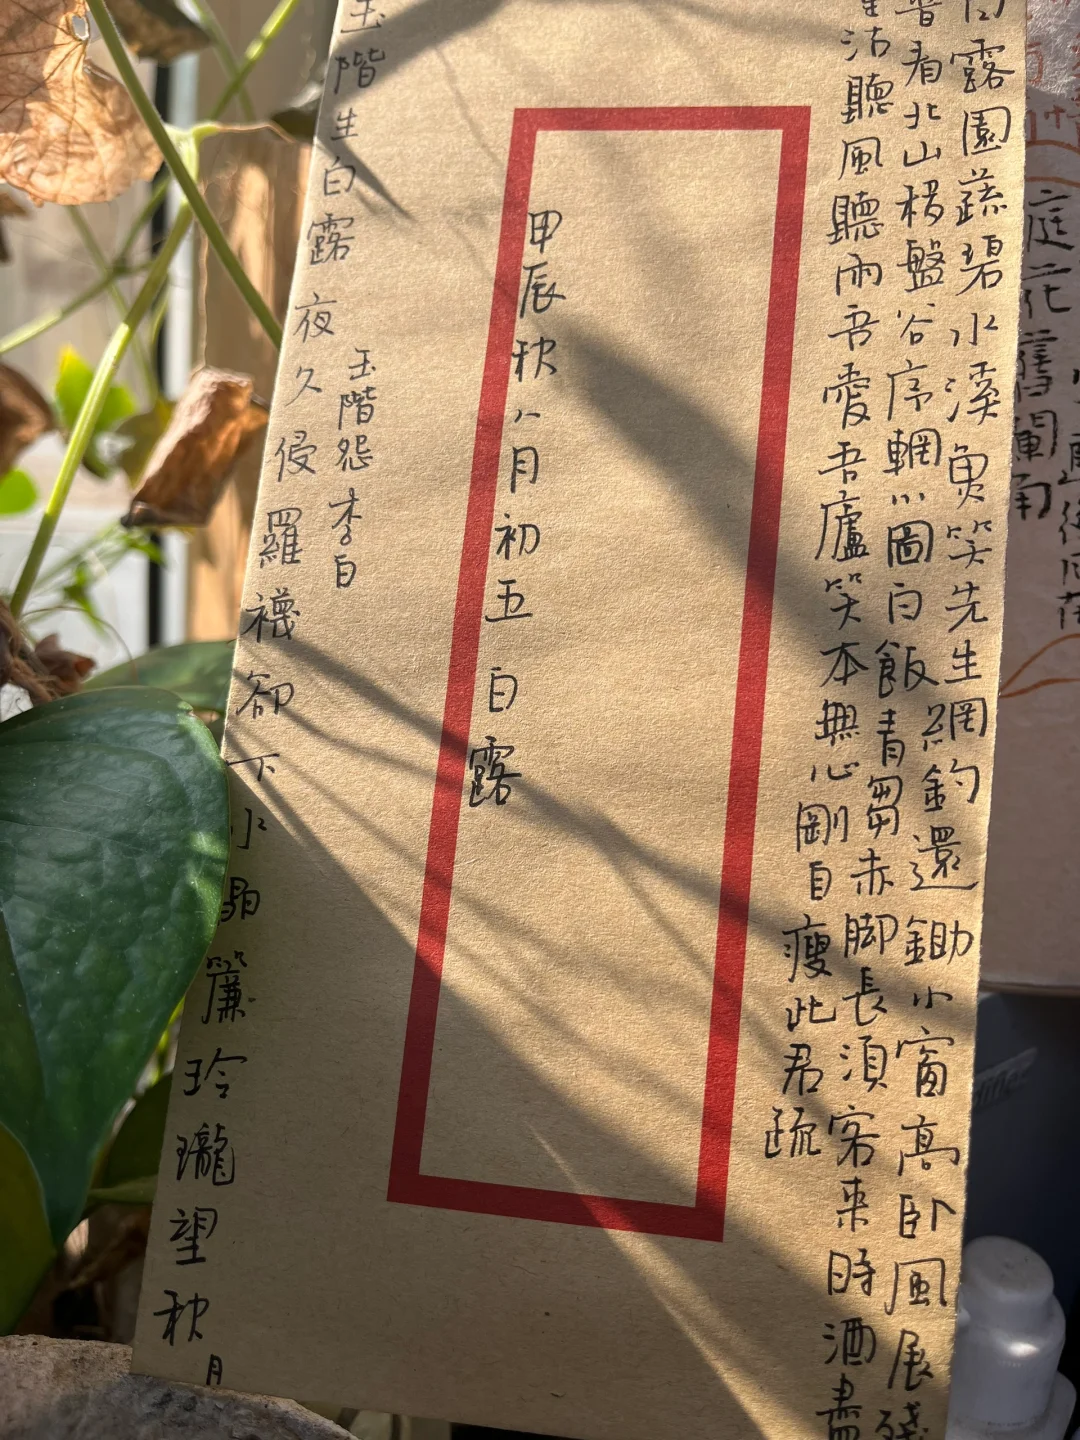 庭花舊闌
白露園蔬碧水溪魚笑先生網釣還鋤小窗高卧風展殘
書看北山移盤谷序輞川圖白飯青芻赤脚長須客來時酒盡
重沽聽風聽雨吾愛吾廬笑本無心剛自瘦此君疏
甲辰秋八月初五 白露
玉階怨 李白
玉階生白露 夜久侵羅襪 卻下水晶簾 玲瓏望秋月